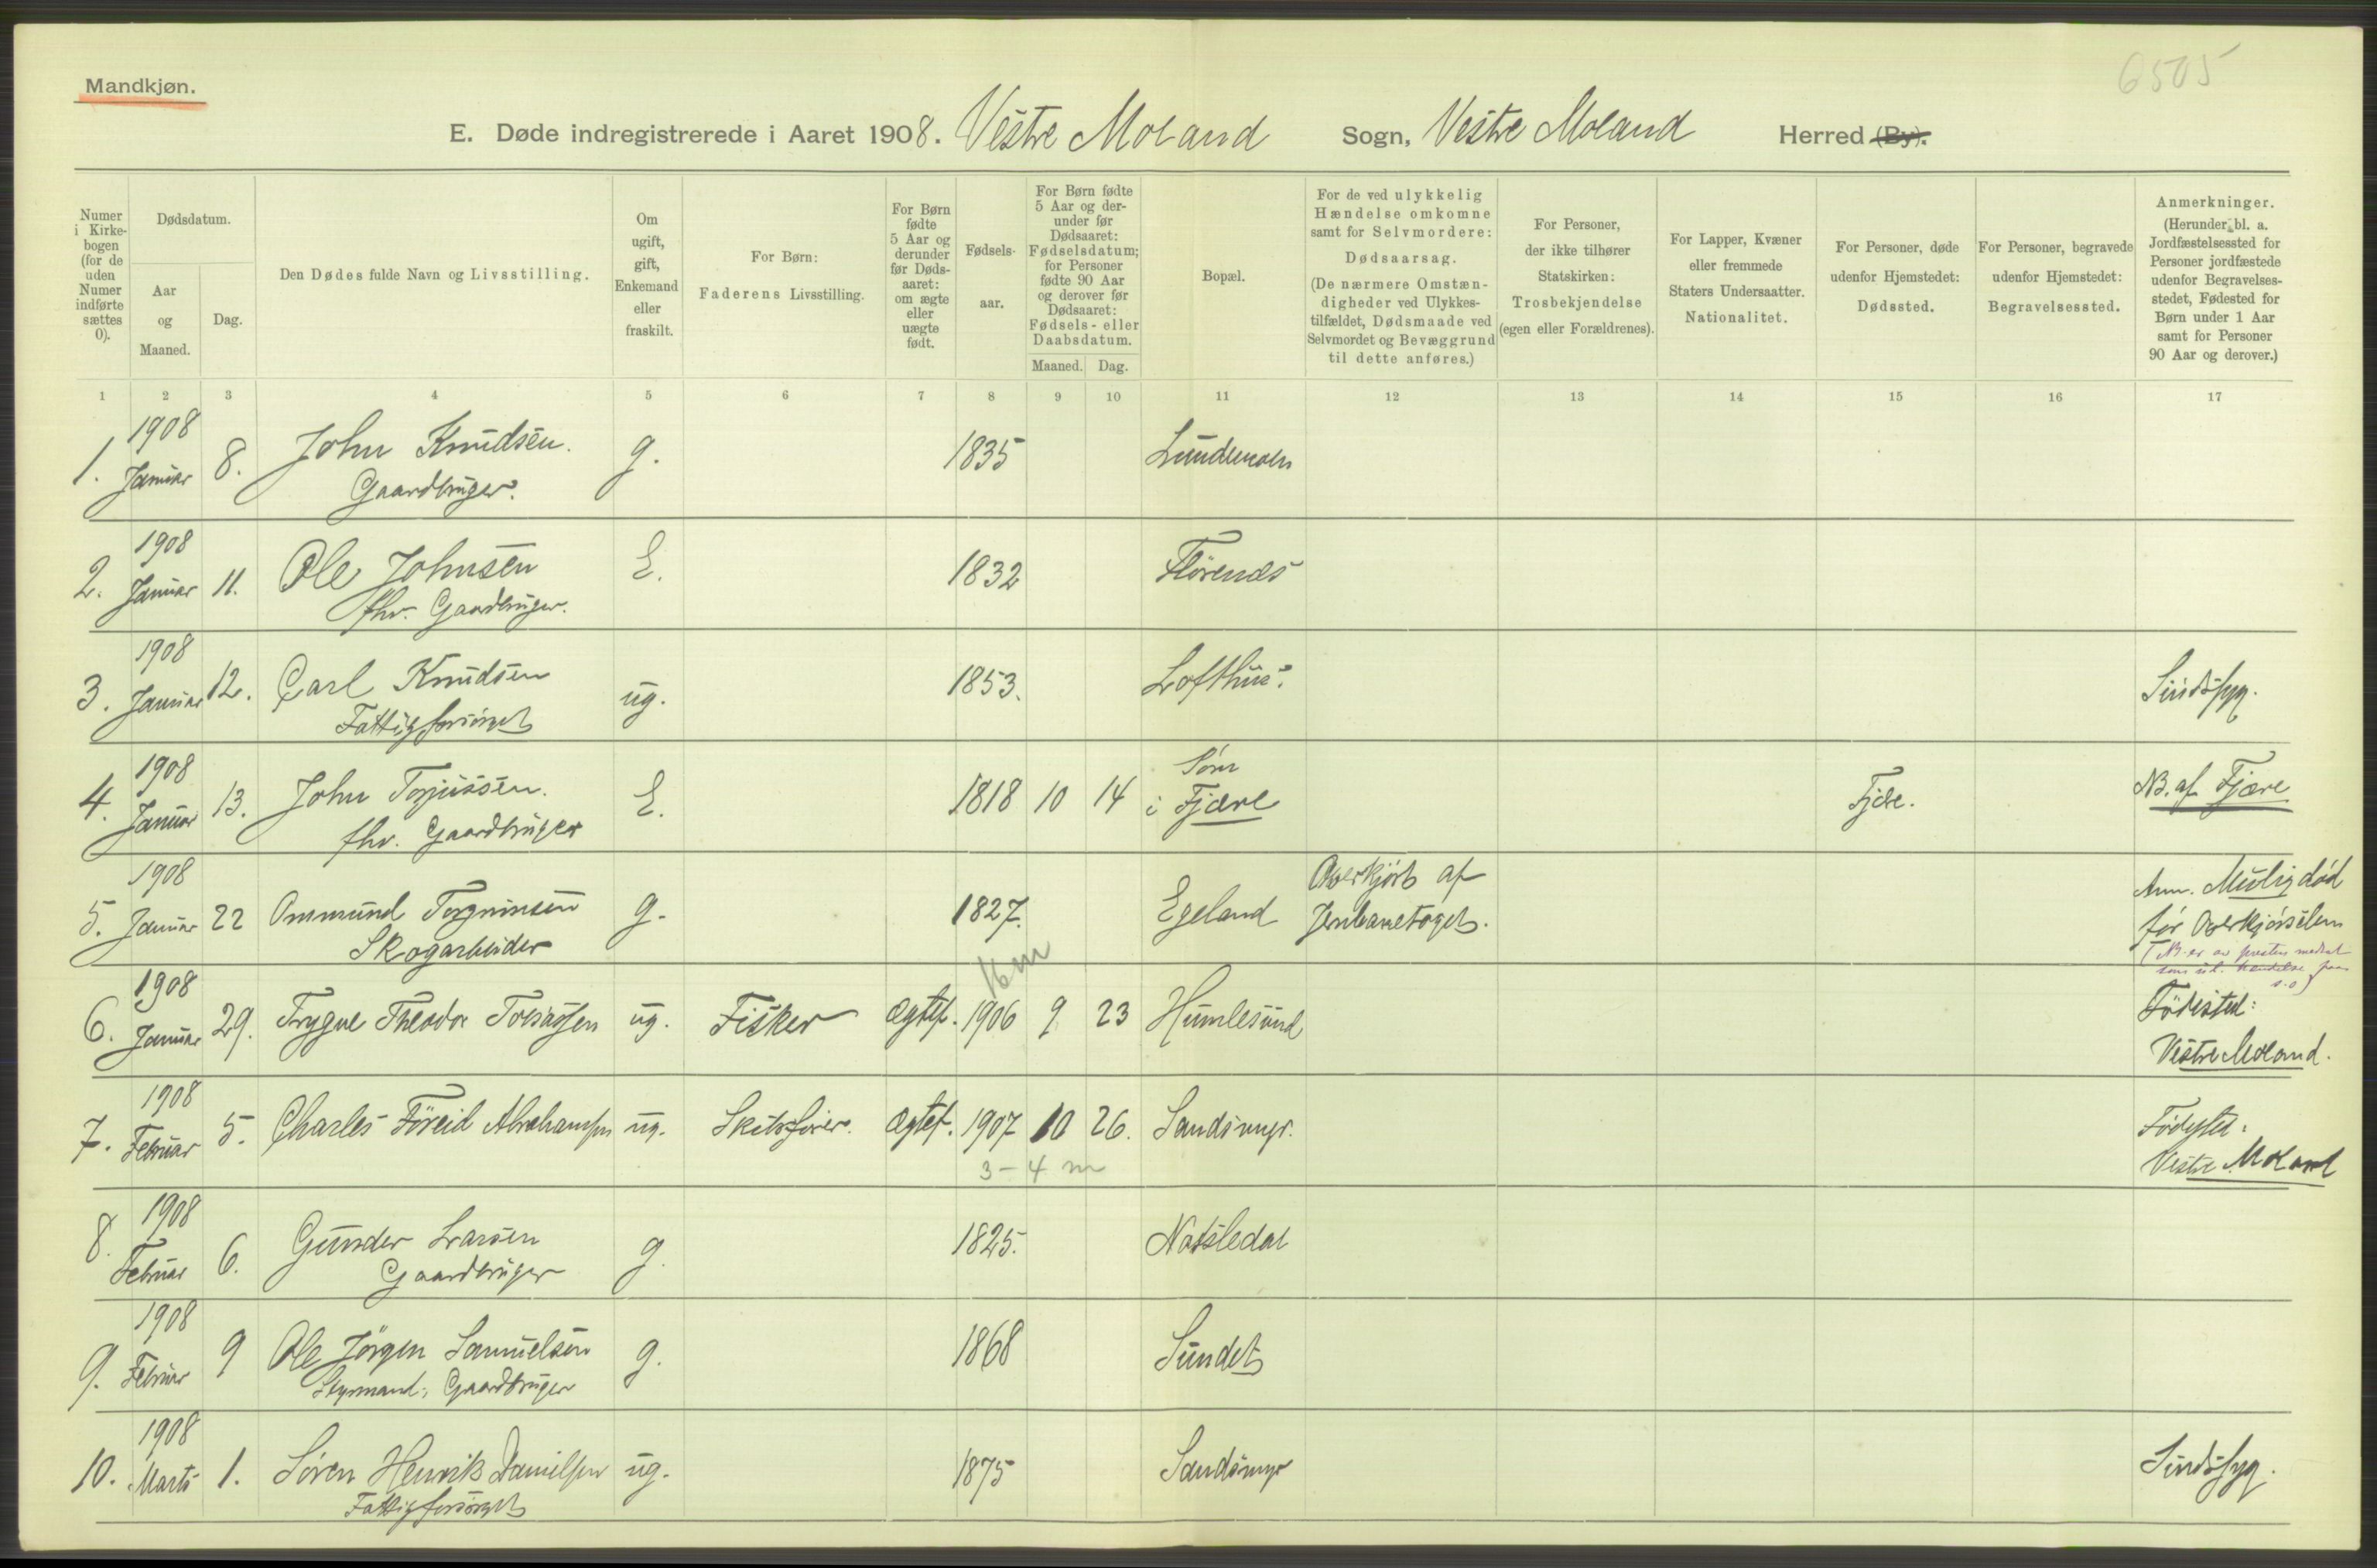 6505
Mandkjøn.
E. Døde indregistrerede i Aaret 1908. Vestre Moland Sogn, Vestre Moland Herred (By).
Numer i Kirkebogen (for de uden Numer indførte sættes 0).
Dødsdatum.
Aar og Maaned.
Dag.
Den Dødes fulde Navn og Livsstilling.
Om ugift, gift, Enkemand eller fraskilt.
For Børn: Faderens Livsstilling.
For Børn fødte 5 Aar og derunder før Dødsaaret: om ægte eller uægte født.
Fødselsaar.
For Børn fødte 5 Aar og derunder før Dødsaaret: Fødselsdatum; for Personer fødte 90 Aar og derover før Dødsaaret: Fødsels- eller Daabsdatum.
Maaned. Dag.
Bopæl.
For de ved ulykkelig Hændelse omkomne samt for Selvmordere: Dødsaarsag. (De nærmere Omstændigheder ved Ulykkestilfældet, Dødsmaade ved Selvmordet og Bevæggrund til dette anføres.)
For Personer, der ikke tilhører Statskirken: Trosbekjendelse (egen eller Forældrenes).
For Lapper, Kvæner eller fremmede Staters Undersaatter. Nationalitet.
For Personer, døde udenfor Hjemstedet: Dødssted.
For Personer, begravede udenfor Hjemstedet: Begravelsessted.
Anmerkninger. (Herunder bl. a. Jordfæstelsessted for Personer jordfæstede udenfor Begravelsesstedet, Fødested for Børn under 1 Aar samt for Personer 90 Aar og derover.)
1 2 3 4 5 6 7 8 9 10 11 12 13 14 15 16 17
1. 1908 Januar 8. John Knudsen. g. 1835
Gaardbruger.
2. 1908 Januar 11. Ole Johnsen E. 1832
fhv. Gaardbruger.
3. 1908 Januar 12. Carl Knudsen ug. 1853. Lofthus. Sindssyg.
Fattigforsørget
4. 1908 Januar 13. John Torjussen. E. 1818 10 14 i Fjære Fjære. NB. af Fjære
fhv. Gaardbruger
5. 1908 Januar 22 Ommund g. 1827. Egeland Overkjørt af Jernbanetoget. Anm. Mulig død før Overkjørselen
Skogarbeider
16 m
6. 1908 Januar 29. Trygve Theodor ug. Fisker Ægtef. 1906 9 23 Humlesund Fødested: Vestre Moland.
7. 1908 Februar 5. Charles Abrahamsen ug. Skibsfører. Ægtef. 1907 10 26. Sandsmyr. Fødested: Vestre Moland
3-4 m
8. 1908 Februar 6. Gunder Larsen g. 1825.
Gaardbruger
9. 1908 Februar 9 Ole Jørgen Samuelsen g. 1868 Sundet
Styrmand, Gaardbruger
10. 1908 Marts 1. Søren Henrik Danielsen ug. 1875 Sandsmyr Sindssyg.
Fattigforsørget